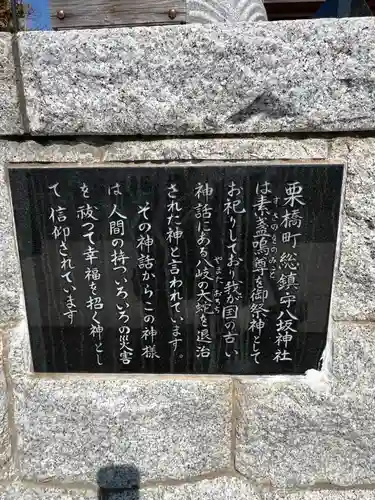 栗橋町総鎮守八坂神社
は素盞嗚尊を御祭神として
すさのをのみこと
お祀りしており我が国の古い
神話にある八岐の大蛇を退治
やまたおろち
された神と言われています。
その神話からこの神様
は人間の持ついろいろの災害
を祓って幸福を招く神とし
て信仰されています